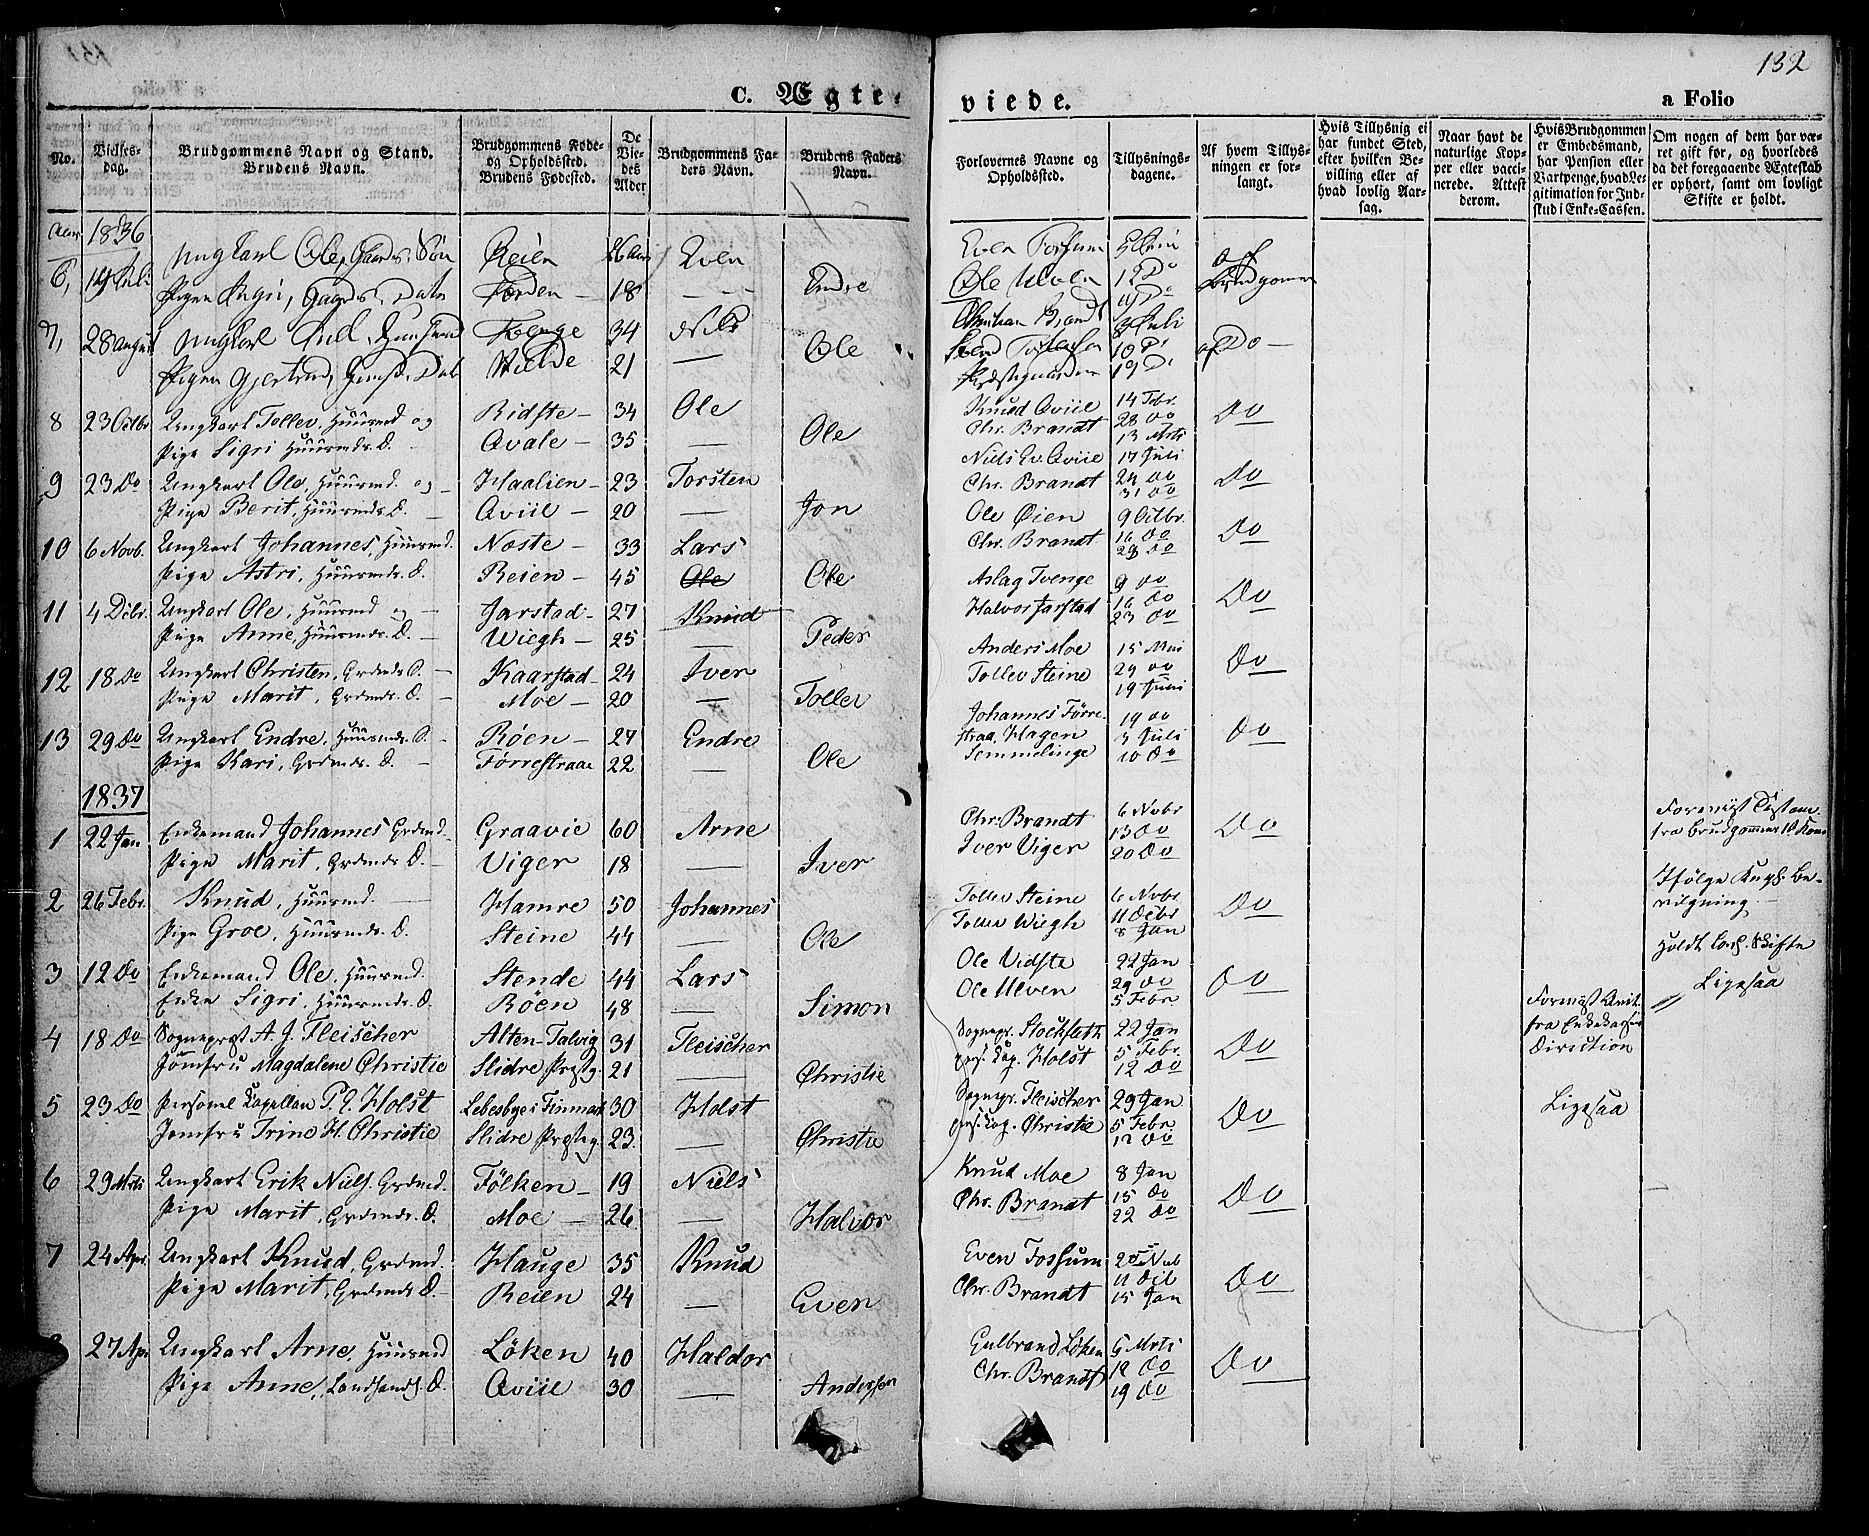 132
C. Ægte-
viede.
a Folio
No.
Vielses-
dag.
Brudgommens Navn og Stand.
Brudens Navn.
Brudgommens Føde-
og Opholdssted.
Brudens Fødested.
De
Vie-
des
Alder
Brudgommens Fa-
ders Navn.
Brudens Faders
Navn.
Forlovernes Navne og
Opholdssted.
Tillysnings-
dagene.
Af hvem Tillys-
ningen er for-
langt.
Hvis Tillysnig ei
har fundet Sted,
efter hvilken Be-
villing eller af
hvad lovlig Aar-
sag.
Naar havt de
naturlige Kop-
per eller vacci-
nerede. Attest
derom.
Hvis Brudgommen
er Embedsmand,
har Pension eller
Vartpenge, hvad Le-
gitimation for Ind-
skud i Enke-Cassen.
Om nogen af dem har væ-
ret gift før, og hvorledes
da det foregaaende Ægteskab
er ophørt, samt om lovligt
Skifte er holdt.
Aar 1836
6, Ungkarl Ole Reien Even Even Fossum
Pigen 18 Endre Ole Ulven 12 Do af Brudgommen
7, 28 August Ungkarl 34 Nils Christian Brandt 3 Juli
Pigen Gjertrud 21 — Ole 10 Do af Do
8 23 Octbr Ungkarl Tollev, Huusmd og Ridste 34 Ole Knud Qviie 14 Febr. 28 Do Do
Pige Sigri Huusmds. D. Qvale 35 — Ole Chr. Brandt 13 Mrts
9 23 Do Ungkarl Ole, Huusmd. og Haalien 23 Torsten Niels Ev. Qviie 17 Juli 24 Do Do
Pige Berit, Huusmds D. Qviie 20 — Jon Chr. Brandt 31 Do
10 6 Novb. Ungkarl Johannes, Huusmd. Noste 33 Lars Ole Øien 9 Octbr. 16 Do Do
Pige Astri, Huusmds. D. Reien 45 Ole Ole Chr. Brandt
11 4 Dcbr. Ungkarl Ole, Huusmd og Jarstad 27 Knud Aslag Tvenge 9 Do 16 Do Do
Pige Anne, Huusmds. D. Wiegh 25 — Peder Halvor Jarstad 23 Do
12 18 Do Ungkarl Christen, Grdmds S. Kaarstad 24 Iver Anders Moe 15 Mai 29 Do Do
Pige Marit, Grdmds. D. Moe 20 — Tollev Tollev Steine 19 Juni
13 29 Do Ungkarl Endre, Huusmds. S. Røen 27 Endre Johannes Førre- 19 Do Do
Pige Kari, Grdmds. D. Førrestraae 22 — Ole straa, Hagen 3 Juli
Semmelinge 10 Do
1837
1 22 Jan. Enkemand Johannes Grdmd. Graavie 60 Arne Chr. Brandt 6 Novbr 13 Do Do
Pige Marit, Grdmds D. Viger 18 — Iver Iver Viger 20 Do
2 26 Febr. Knud, Huusmd. Hamre 50 Johannes Tollev Steine 6 Novbr 11 Decbr Do
Ifølge Kngl. Be-
vilgning.
Pige Groe, Huusmds. D. Steine 44 — Ole Tollev Wiegh 8 Jan
3 12 Do Enkemand Ole, Huusmd. Stende 44 Lars Ole Vidste 22 Jan 29 Do Do
Holdt Skifte
Enke Sigri, Huusmds. D. Røen 48 — Simon Ole Ulven 5 Febr
Ligesaa
4 18 Do Sognepræst A. J. Fleischer Alten-Talvig 31 Fleischer Sognepr. Stockfleth 22 Jan 5 Febr. Do
Jomfru Magdalene Christie Slidre Præstg. 21 — Christie pers. Cap. Holst 12 Do
fra Enkekassens
Direction
5 23 Do Personel Capellan P. E. Holst Lebesbye i Finmark 30 Holst Sognepr. Fleischer 29 Jan 5 Febr Do
Ligesaa
Jomfru Trine H. Christie Slidre Præsteg. 23 — Christie pers. Cap. Christie 12 Do
6 29 Mrts Ungkarl Erik Niels. Grdmd. Følken 19 Niels Knut Moe 8 Jan 15 Do Do
Pige Marit, Grdmds. D. Moe 26 — Halvor Chr. Brandt 22 Do
7 24 Apr. Ungkarl Knud, Grdmd. Hauge 35 Knud Even Fossum 11 Do
Pige Marit, Grdmds D. Reien 24 — Even Chr. Brandt 15 Jan
27 Apr Ungkarl Arne, Huusmd Løken 40 Haldor Gulbrand Løken 5 Mrts 12 Do Do
Pige Anne, D. Qviie 30 — Anderson Chr. Brandt 19 Do